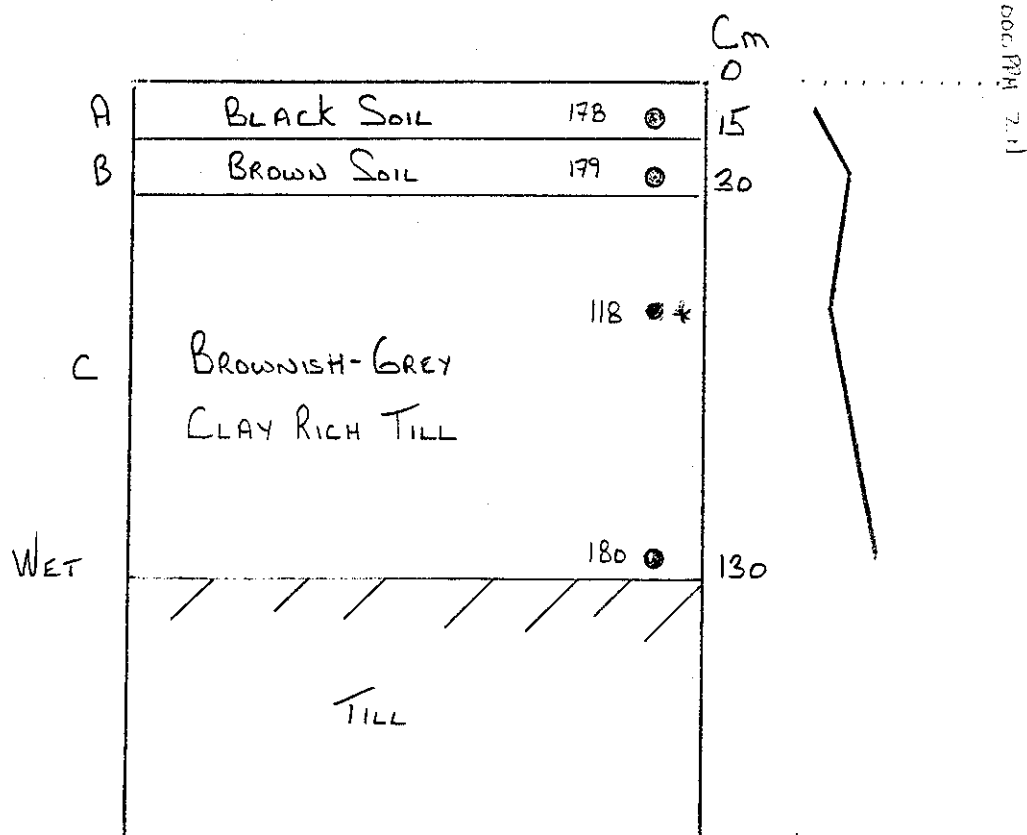 Cm
0
A BLACK SOIL 178 15
B BROWN SOIL 179 30
118 *
C BROWNISH-GREY
CLAY RICH TILL
WET 180 130
TILL